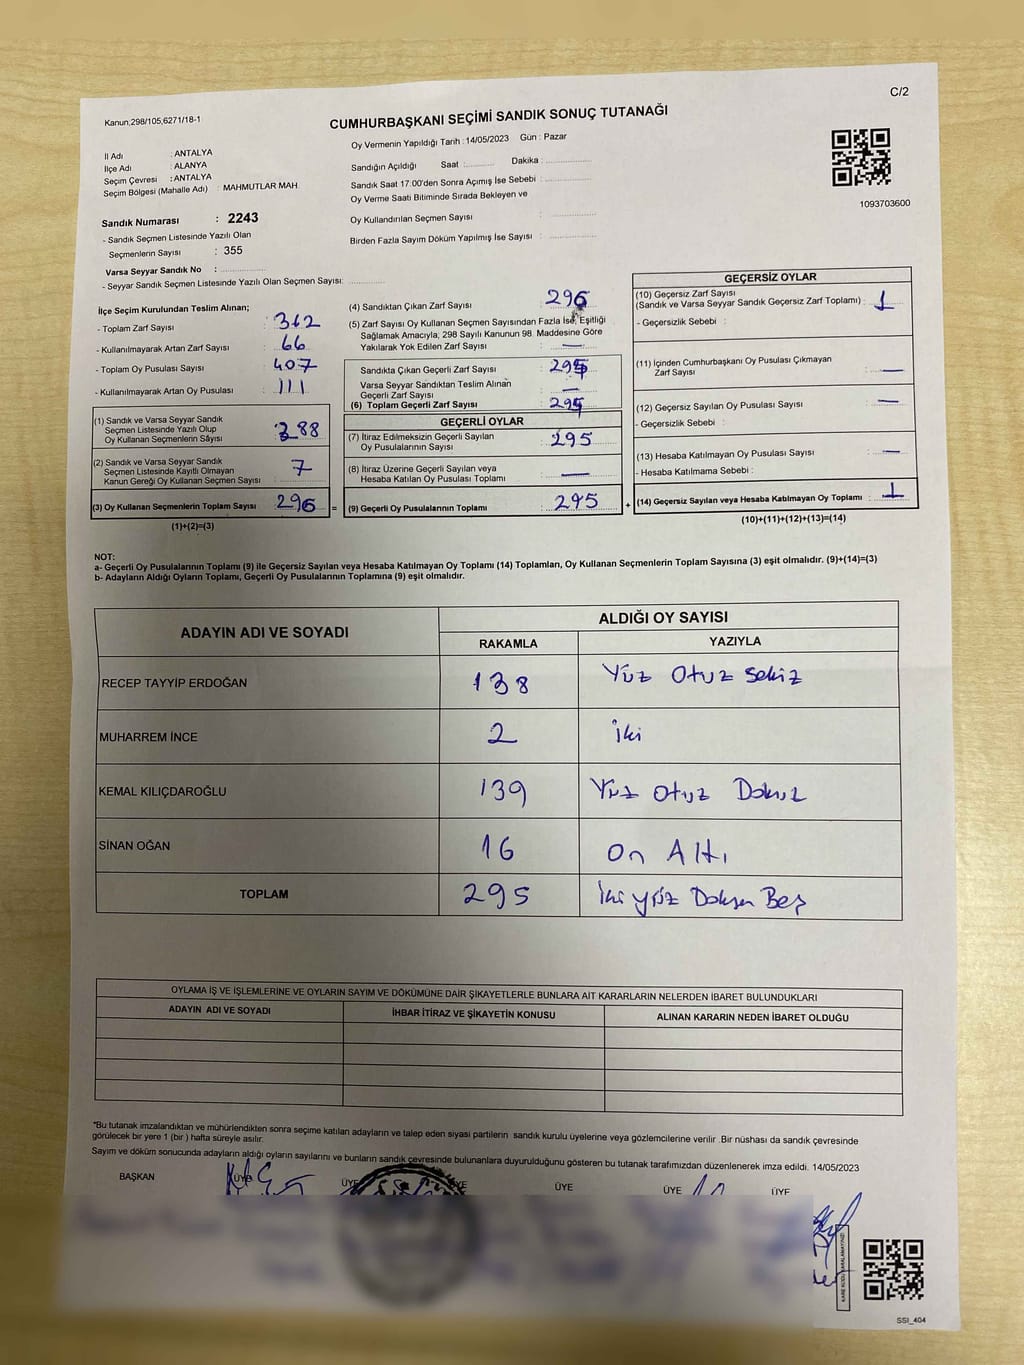 C/2
Kanun,298/105,6271/18-1
CUMHURBAŞKANI SEÇİMİ SANDIK SONUÇ TUTANAĞI
Oy Vermenin Yapıldığı Tarih :14/05/2023 Gün : Pazar
İl Adı : ANTALYA
İlçe Adı : ALANYA
Seçim Çevresi : ANTALYA
Seçim Bölgesi (Mahalle Adı) : MAHMUTLAR MAH.
Sandığın Açıldığı Saat :............ Dakika :............
Sandık Saat 17:00'den Sonra Açımış İse Sebebi :............
Oy Verme Saati Bitiminde Sırada Bekleyen ve
Oy Kullandırılan Seçmen Sayısı :............
Birden Fazla Sayım Döküm Yapılmış İse Sayısı :............
1093703600
Sandık Numarası : 2243
- Sandık Seçmen Listesinde Yazılı Olan
Seçmenlerin Sayısı : 355
Varsa Seyyar Sandık No :............
- Seyyar Sandık Seçmen Listesinde Yazılı Olan Seçmen Sayısı:............
İlçe Seçim Kurulundan Teslim Alınan;
- Toplam Zarf Sayısı : 362
- Kullanılmayarak Artan Zarf Sayısı : 66
- Toplam Oy Pusulası Sayısı : 407
- Kullanılmayarak Artan Oy Pusulası : 111
(1) Sandık ve Varsa Seyyar Sandık
Seçmen Listesinde Yazılı Olup
Oy Kullanan Seçmenlerin Sayısı : 288
(2) Sandık ve Varsa Seyyar Sandık
Seçmen Listesinde Kayıtlı Olmayan
Kanun Gereği Oy Kullanan Seçmen Sayısı : 7
(3) Oy Kullanan Seçmenlerin Toplam Sayısı : 296 =
(1)+(2)=(3)
(4) Sandıktan Çıkan Zarf Sayısı : 296
(5) Zarf Sayısı Oy Kullanan Seçmen Sayısından Fazla İse, Eşitliği
Sağlamak Amacıyla, 298 Sayılı Kanunun 98. Maddesine Göre
Yakılarak Yok Edilen Zarf Sayısı : —
Sandıkta Çıkan Geçerli Zarf Sayısı : 295
Varsa Seyyar Sandıktan Teslim Alınan
Geçerli Zarf Sayısı : —
(6) Toplam Geçerli Zarf Sayısı : 295
GEÇERLİ OYLAR
(7) İtiraz Edilmeksizin Geçerli Sayılan
Oy Pusulalarının Sayısı : 295
(8) İtiraz Üzerine Geçerli Sayılan veya
Hesaba Katılan Oy Pusulası Toplamı : —
(9) Geçerli Oy Pusulalarının Toplamı : 295 +
GEÇERSİZ OYLAR
(10) Geçersiz Zarf Sayısı
(Sandık ve Varsa Seyyar Sandık Geçersiz Zarf Toplamı) : 1
- Geçersizlik Sebebi :
(11) İçinden Cumhurbaşkanı Oy Pusulası Çıkmayan
Zarf Sayısı : —
(12) Geçersiz Sayılan Oy Pusulası Sayısı : —
- Geçersizlik Sebebi :
(13) Hesaba Katılmayan Oy Pusulası Sayısı : —
- Hesaba Katılmama Sebebi :
(14) Geçersiz Sayılan veya Hesaba Katılmayan Oy Toplamı : 1
(10)+(11)+(12)+(13)=(14)
NOT:
a- Geçerli Oy Pusulalarının Toplamı (9) ile Geçersiz Sayılan veya Hesaba Katılmayan Oy Toplamı (14) Toplamları, Oy Kullanan Seçmenlerin Toplam Sayısına (3) eşit olmalıdır. (9)+(14)=(3)
b- Adayların Aldığı Oyların Toplamı, Geçerli Oy Pusulalarının Toplamına (9) eşit olmalıdır.
ADAYIN ADI VE SOYADI
ALDIĞI OY SAYISI
RAKAMLA YAZIYLA
RECEP TAYYİP ERDOĞAN 138 Yüz Otuz Sekiz
MUHARREM İNCE 2 İki
KEMAL KILIÇDAROĞLU 139 Yüz Otuz Dokuz
SİNAN OĞAN 16 On Altı
TOPLAM 295 İki yüz Doksan Beş
OYLAMA İŞ VE İŞLEMLERİNE VE OYLARIN SAYIM VE DÖKÜMÜNE DAİR ŞİKAYETLERLE BUNLARA AİT KARARLARIN NELERDEN İBARET BULUNDUKLARI
ADAYIN ADI VE SOYADI İHBAR İTİRAZ VE ŞİKAYETİN KONUSU ALINAN KARARIN NEDEN İBARET OLDUĞU
*Bu tutanak imzalandıktan ve mühürlendikten sonra seçime katılan adayların ve talep eden siyasi partilerin sandık kurulu üyelerine veya gözlemcilerine verilir .Bir nüshası da sandık çevresinde
görülecek bir yere 1 (bir ) hafta süreyle asılır.
Sayım ve döküm sonucunda adayların aldığı oyların sayılarını ve bunların sandık çevresinde bulunanlara duyurulduğunu gösteren bu tutanak tarafımızdan düzenlenerek imza edildi. 14/05/2023
BAŞKAN ÜYE ÜYE ÜYE ÜYE ÜYE ÜYE
KARE KODU KARALAMAYINIZ!
SSI_404